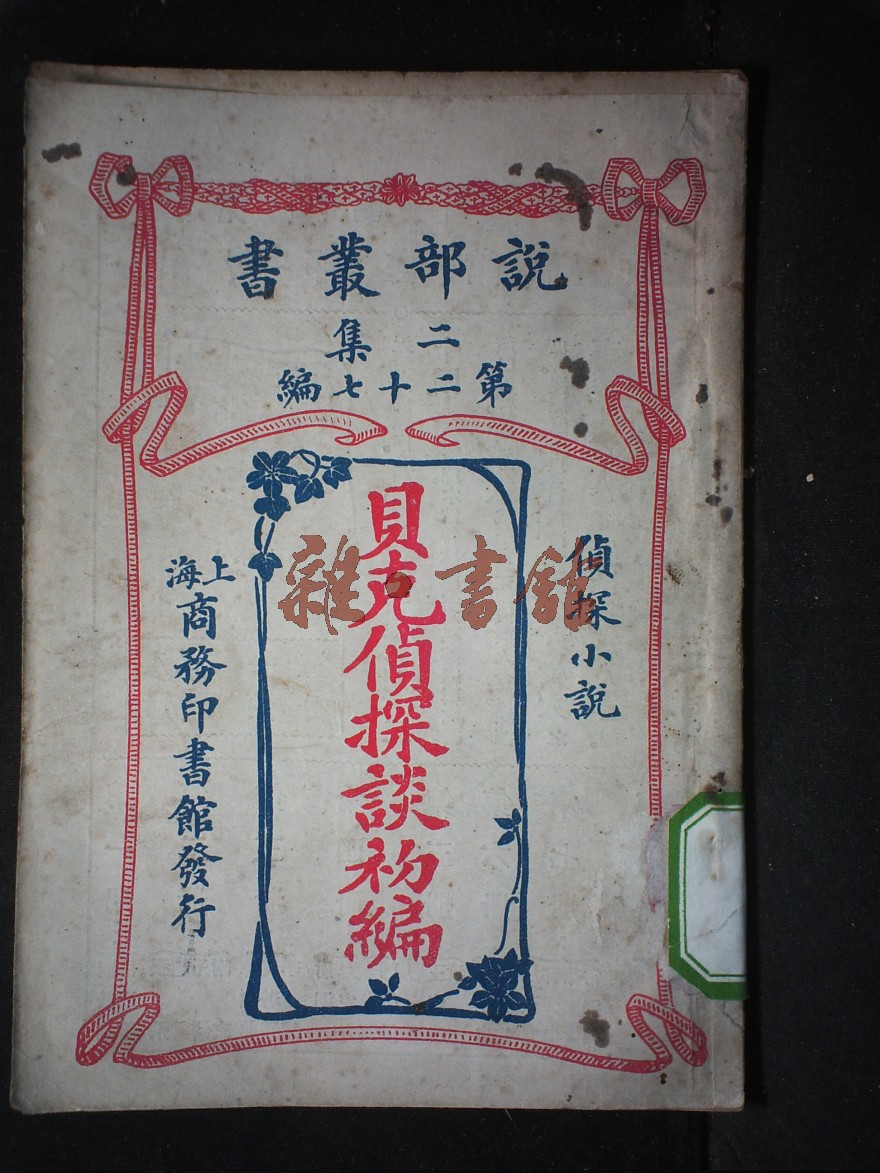 說部叢書
二集
第二十七編
偵探小說
貝克偵探談初編
上海商務印書館發行
雜書館